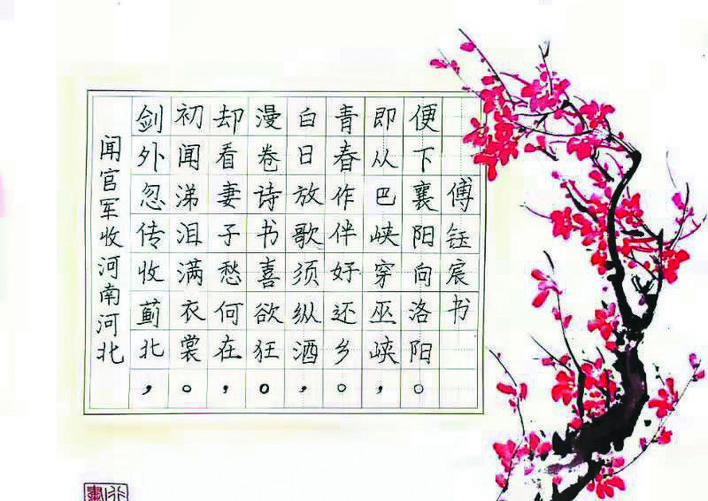 闻官军收河南河北
剑外忽传收蓟北，
初闻涕泪满衣裳。
却看妻子愁何在，
漫卷诗书喜欲狂。
白日放歌须纵酒，
青春作伴好还乡。
即从巴峡穿巫峡，
便下襄阳向洛阳。
傅钰宸书